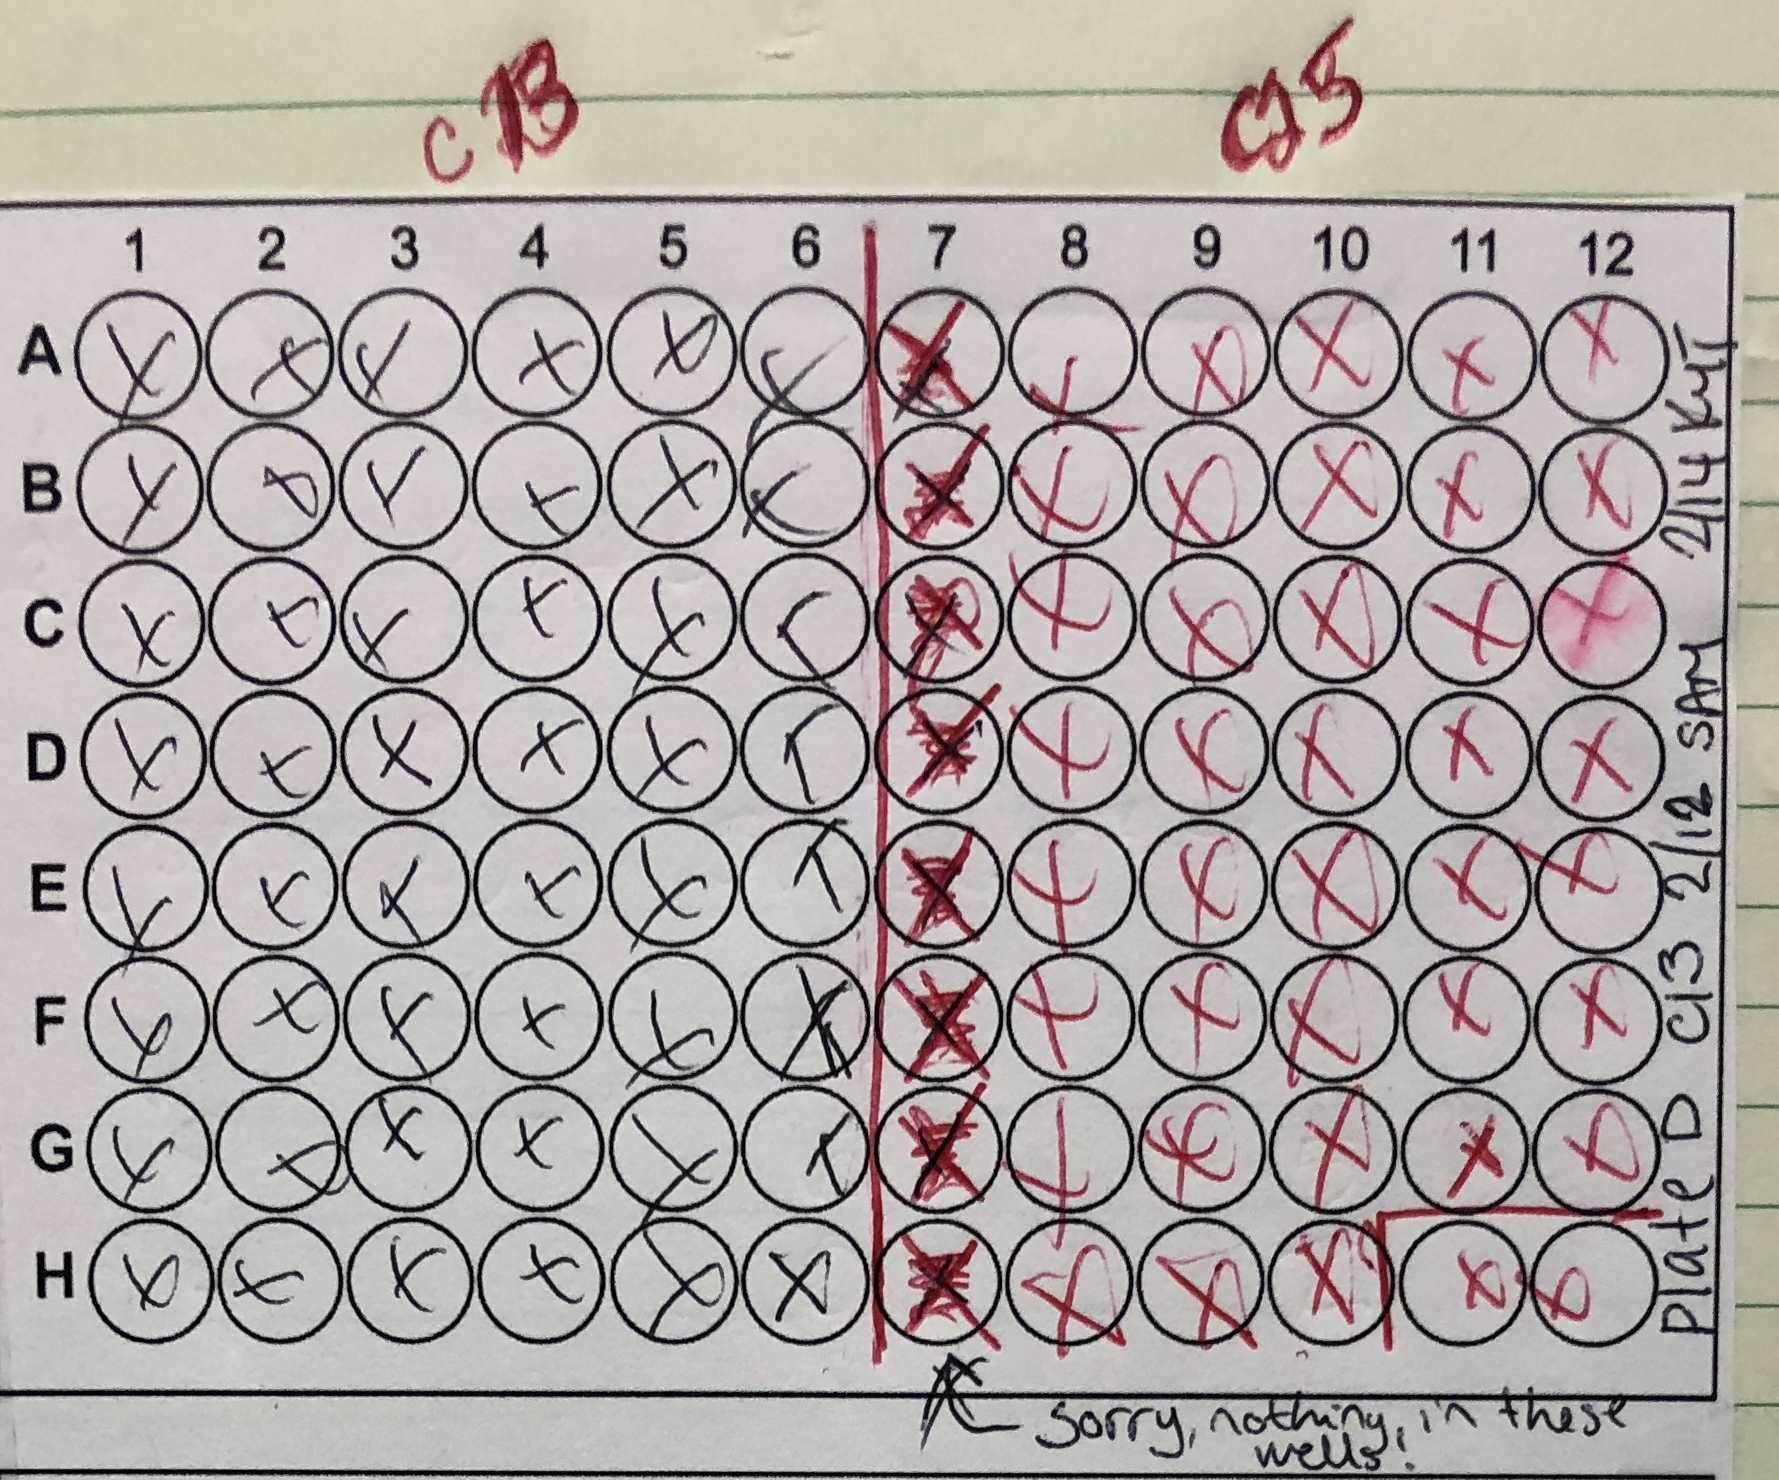 1 2 3 4 5 6 7 8 9 10 11 12
A
B
C
D
E
F
G
H
Plate D C13 2/12 SAM 2/14
sorry, nothing, in these
wells!